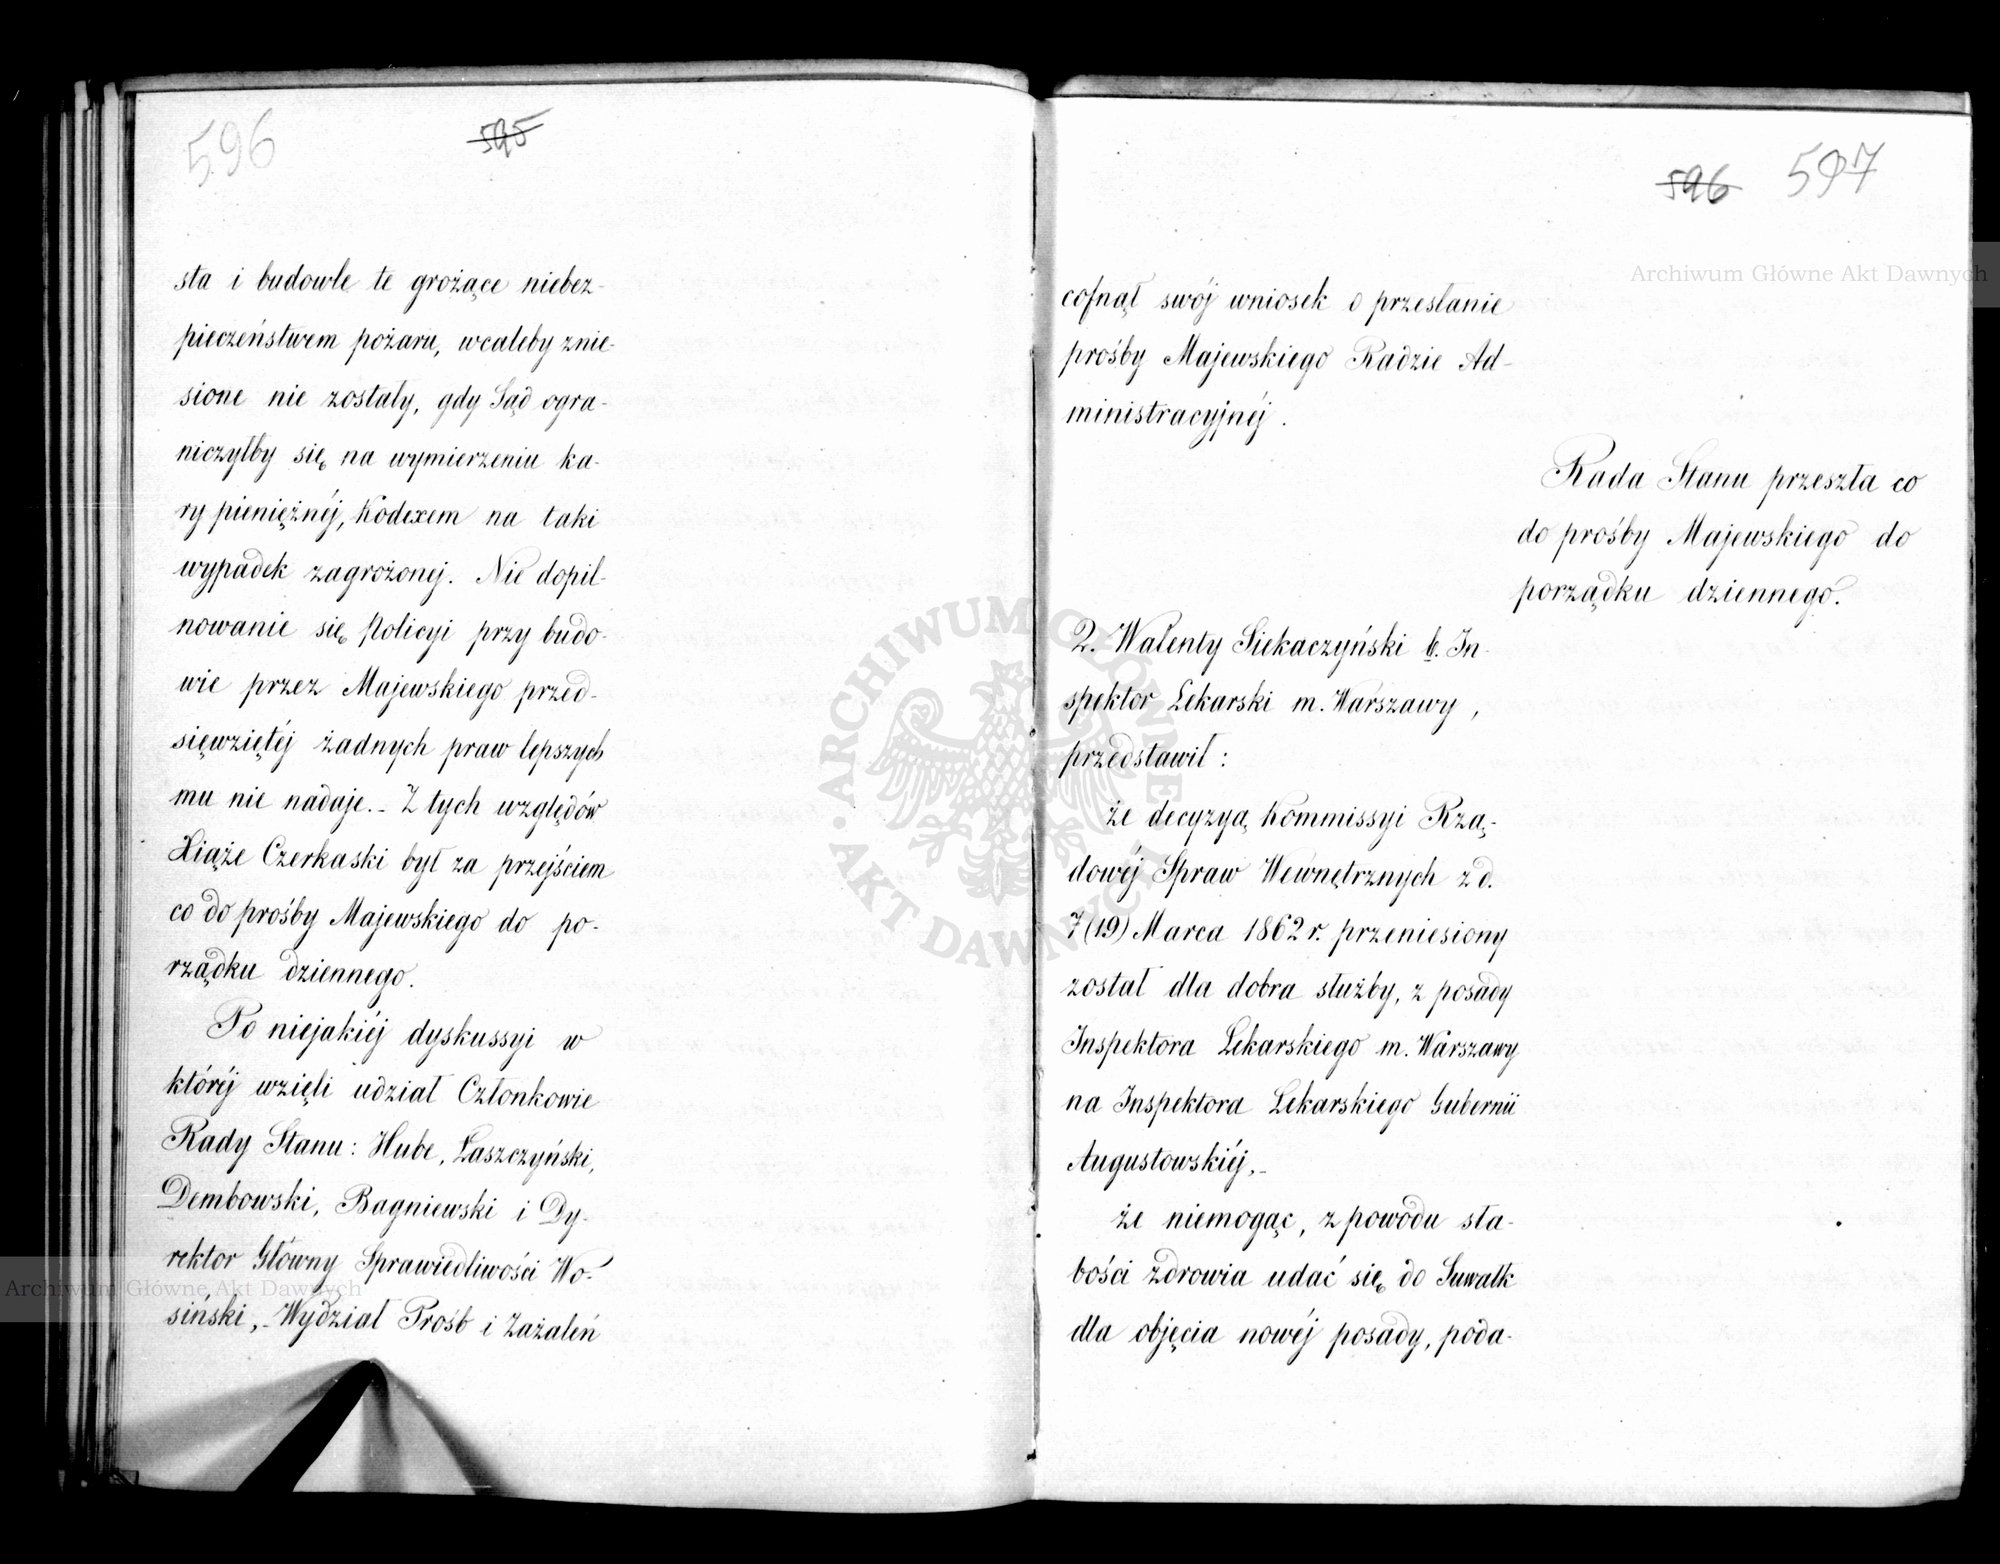 596
595
sta i budowle te grożące niebez-
pieczeństwem pożaru, wcaleby znie-
sione nie zostały, gdy Sąd ogra-
niczyłby się na wymierzeniu ka-
ry pieniężnéj, Kodexem na taki
wypadek zagrożonej. Nie dopil-
nowanie się Policyi przy budo-
wie przez Majewskiego przed-
sięwziętéj żadnych praw lepszych
mu nie nadaje.- Z tych względów
Xiąże Czerkaski był za przejściem
co do prośby Majewskiego do po-
rządku dziennego.
Po niejakiéj dyskussyi w
któréj wzięli udział Członkowie
Rady Stanu: Hube, Łaszczyński,
Dembowski, Bagniewski i Dy-
rektor Główny Sprawiedliwości Wo-
siński,- Wydział Próśb i Zażaleń
596
597
cofnął swój wniosek o przesłanie
prośby Majewskiego Radzie Ad-
ministracyjnéj.
Rada Stanu przeszła co
do prośby Majewskiego do
porządku dziennego.
2. Walenty Siekaczyński b. In-
spektor Lekarski m. Warszawy,
przedstawił:
że decyzyą Kommissyi Rzą-
dowéj Spraw Wewnętrznych z d.
7 (19) Marca 1862 r. przeniesiony
został dla dobra służby, z posady
Inspektora Lekarskiego m. Warszawy
na Inspektora Lekarskiego Gubernii
Augustowskiéj,-
że niemogąc, z powodu sła-
bości zdrowia udać się do Suwałk
dla objęcia nowéj posady, poda-
Archiwum Główne Akt Dawnych
Archiwum Główne Akt Dawnych
ARCHIWUM GŁÓWNE · AKT DAWNYCH ·